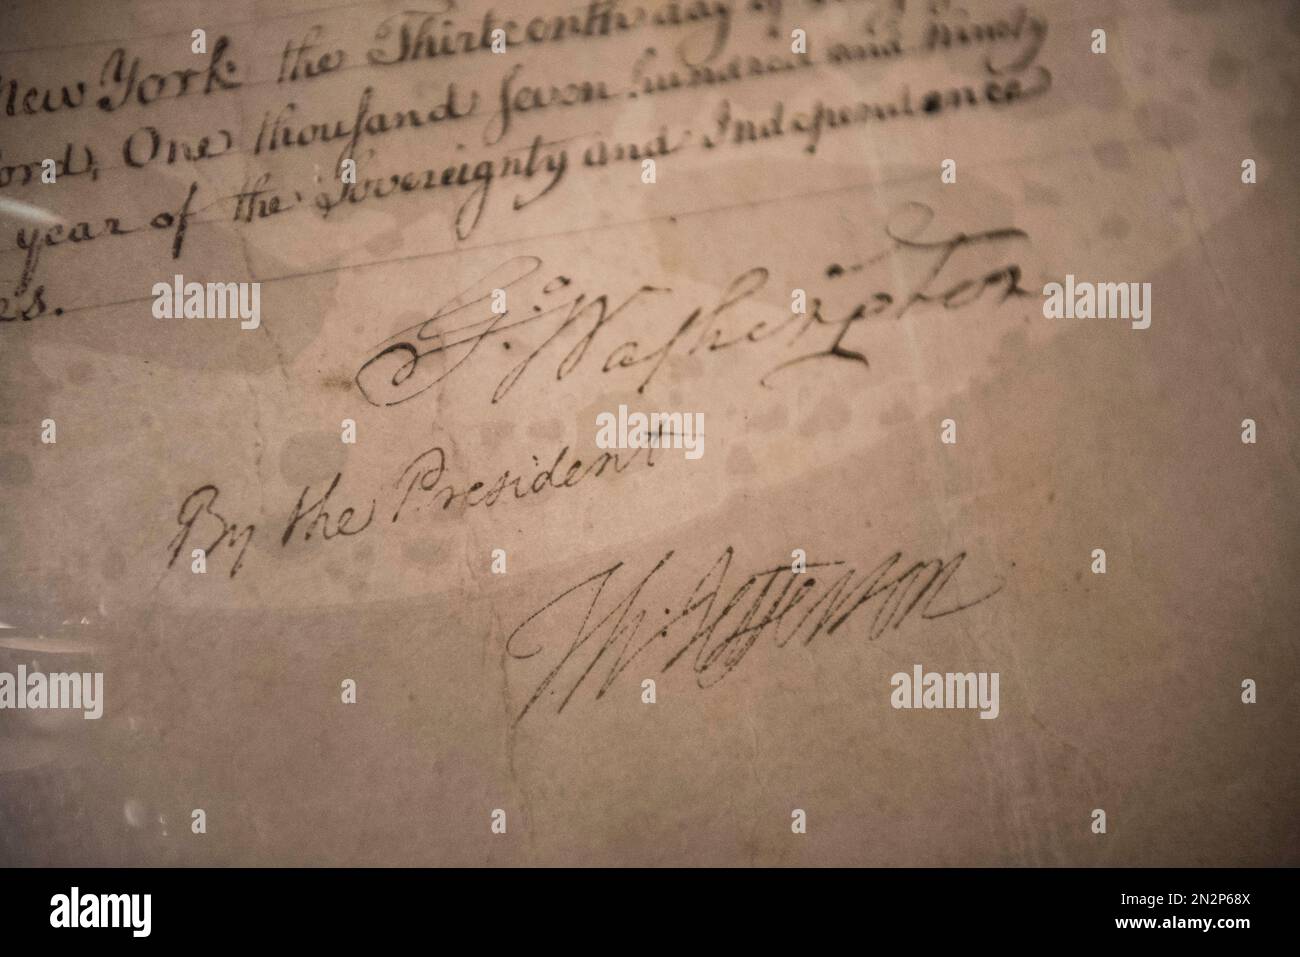 New York the Thirteenth day of
ord, One thousand seven hundred and ninety
year of the Sovereignty and Independence
es.
Go. Washington
By the President
Th. Jefferson
alamy
Image ID: 2N2P68X
www.alamy.com